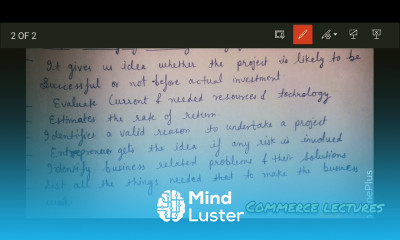 2 OF 2
It gives us idea whether the project is likely to be
Successful or not before actual investment
Evaluate Current & needed resources & technology
Estimates the rate of return
Identifies a valid reason to undertake a project
Entrepreneur gets the idea if any risk is involved
Identify business related problems & their solutions
List all the things needed that to make the business
work
Mind
Luster
COMMERCE LECTURES
OnePlus